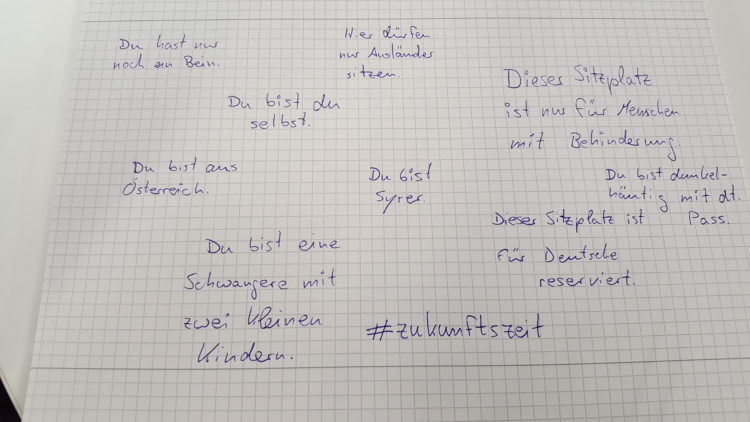 Du hast nur
noch ein Bein.
Hier dürfen
nur Ausländer
sitzen.
Du bist du
selbst.
Dieser Sitzplatz
ist nur für Menschen
mit Behinderung.
Du bist aus
Österreich.
Du bist
Syrer.
Du bist dunkel-
häutig mit dt.
Pass.
Dieser Sitzplatz ist
für Deutsche
reserviert.
Du bist eine
Schwangere mit
zwei kleinen
Kindern.
#zukunftszeit